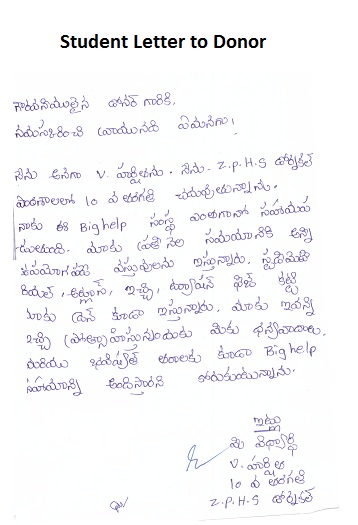 Student Letter to Donor
గౌరవనీయులైన డోనర్ గారికి,
నమస్కరించి వ్రాయునది ఏమనగా!
నేను అనగా V. హర్షిత. నేను. Z.P.H.S డోర్నకల్
పాఠశాలలో 10 వ తరగతి చదువుతున్నాను.
నాకు ఈ Bighelp సంస్థ ఎంతగానో సహాయప
డుతుంది. మాకు ప్రతీ నెల సమయానికి అన్ని
ఉపయోగపడే వస్తువులను ఇస్తున్నారు. స్టడీమెటీ
రియల్, ఇచ్చి, ట్యూషన్ ఫీజ్ కట్టి
మాకు కూడా ఇస్తున్నారు. మాకు ఇవన్నీ
ఇచ్చి ప్రోత్సాహిస్తున్నందుకు మీకు ధన్యవాదాలు.
మరియు భవిష్యత్ తరాలకు కూడా Bighelp
సహాయాన్ని అందిస్తారని కోరుకుంటున్నాను.
ఇట్లు
మీ విద్యార్థి
V. హర్షిత
10 వ తరగతి
Z.P.H.S డోర్నకల్